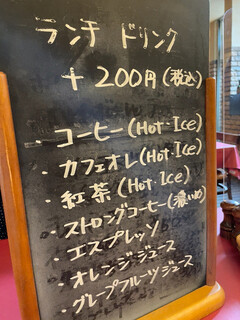 ランチ ドリンク
+200円(税込)
・コーヒー(Hot・Ice)
・カフェオレ(Hot・Ice)
・紅茶(Hot・Ice)
・ストロングコーヒー(濃いめ)
・エスプレッソ
・オレンジジュース
・グレープフルーツジュース